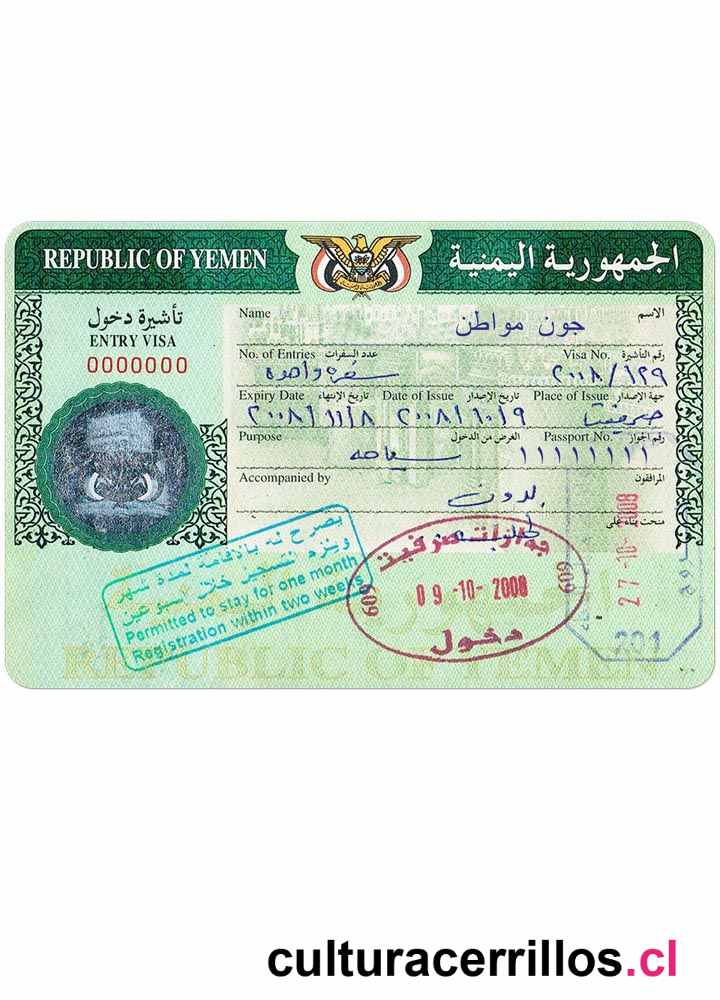 REPUBLIC OF YEMEN
الجمهورية اليمنية
تأشيرة دخول
ENTRY VISA
0000000
Name
الاسم
جون مواطن
No. of Entries
عدد السفرات
Visa No.
رقم التأشيرة
سفره واحده
٢٠٠٨/٦٢٩
Expiry Date
تاريخ الإنتهاء
Date of Issue
تاريخ الإصدار
Place of Issue
جهة الإصدار
٢٠٠٨/١١/٨
٢٠٠٨/١٠/٩
صرفيت
Purpose
الغرض من الدخول
Passport No.
رقم الجواز
سياحه
١١١١١١١١
Accompanied by
المرافقون
بدون
منحت بناء على
يصرح له بالإقامة لمدة شهر
ويلزم التسجيل خلال أسبوعين
Permitted to stay for one month
Registration within two weeks
جوازات صرفيت
609
09-10-2008
609
دخول
27-10-2008
201
REPUBLIC OF YEMEN
culturacerrillos.cl